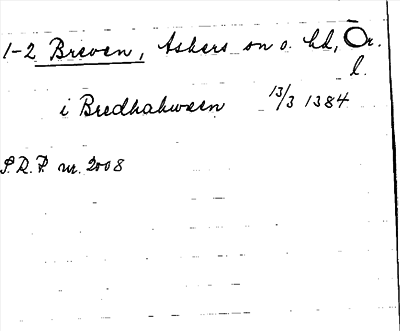 1-2 Breven, Askers sn o. hd, Ör.
l.
i Bredhahwæn 13/3 1384
S.R.P. nr. 2008